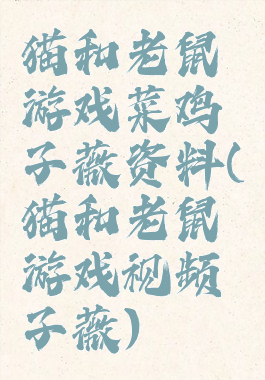 猫和老鼠
游戏菜鸡
子薇资料(
猫和老鼠
游戏视频
子薇)